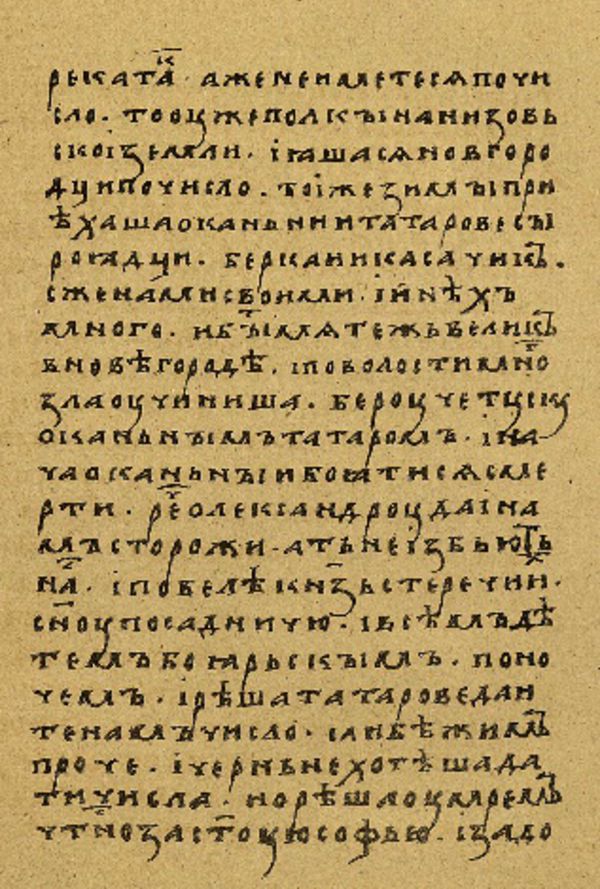 рькатаⷦ҇ · аженеиметесѧпочи
сло · тооужеполкъінанизовь
скоіземли · іꙗшасѧновгоро
дципочисло · тоіжезимъіпри
ѣхашаоканьниитатаровесъі
роꙗдци · беркаикасачикъ ·
сженамисвоими · іинѣхъ
много · ибъⷭ҇імѧтежьвеликъ
вновѣгородѣ · іповолостимⷩ҇о
злаоучиниша · бероучетоускоу
оканьнъімътатаромъ · іна
чаоканьнъіибоꙗтисѧсме
рти · реⷱ҇олександроудаіна
мъсторожи · атьнеізбьюⷮ҇ь
наⷭ҇ · іповелѣкнз҃ьстеречииⷯ҇ ·
сн҃оупосадничю · івсѣмъдѣ
темъбоꙗрьскъімъ · поно
чемъ · ірѣшататароведаи
тенамъчисло · ілибѣжимъ
проче · ічерньнехотѣшада
тичисла · норѣшаоумремъ
чтⷭ҇нозаст҃оуюсофью · ізадо